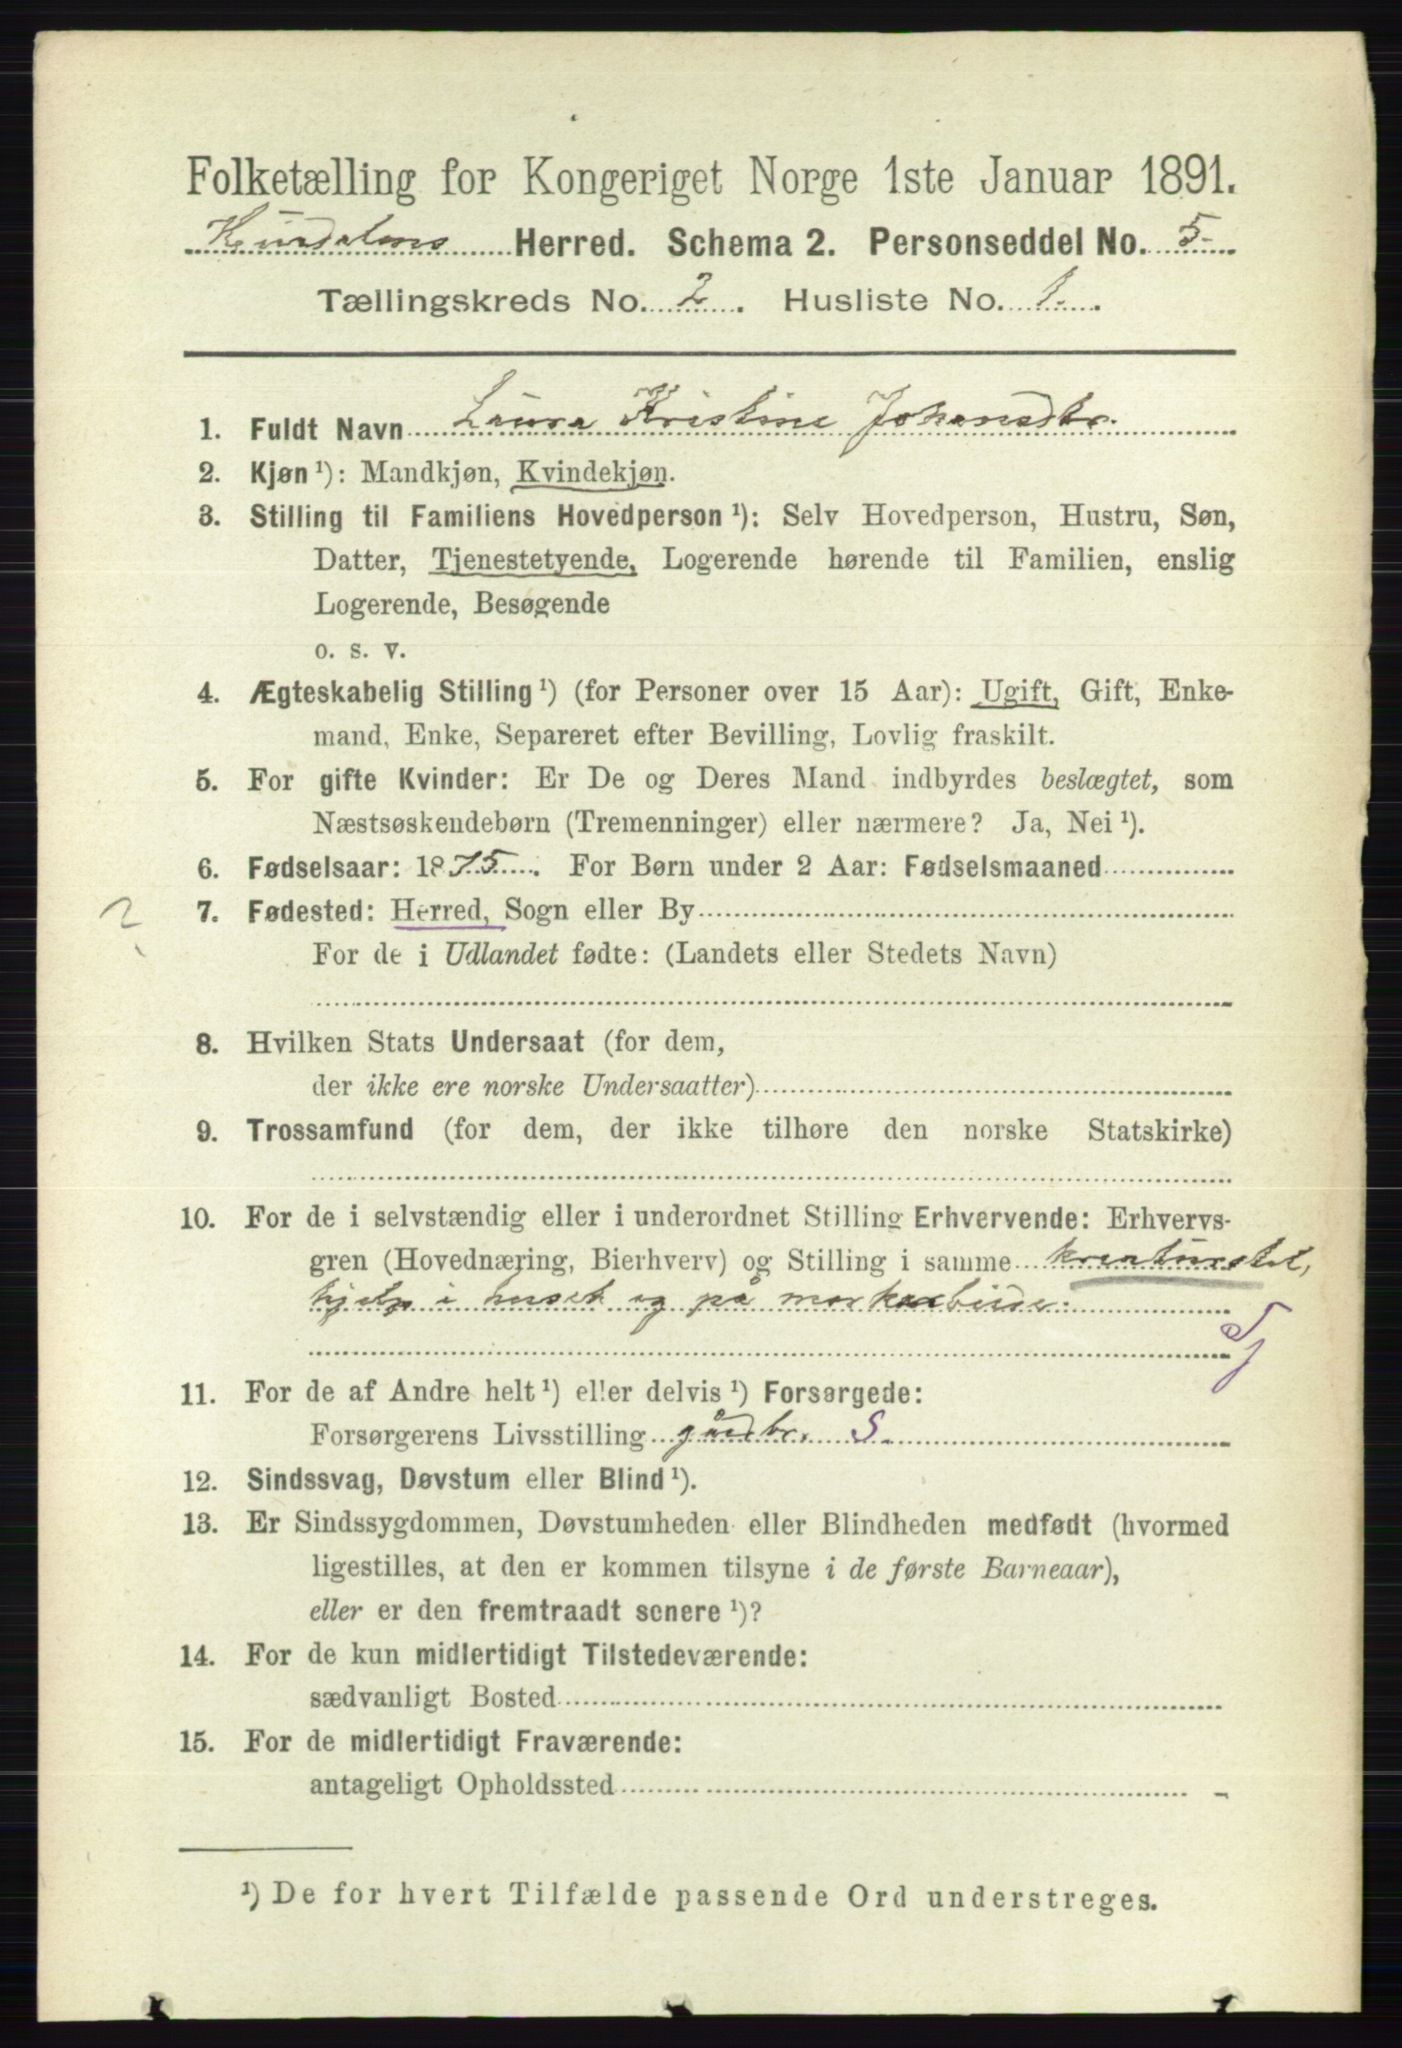 Folketælling for Kongeriget Norge 1ste Januar 1891.
Hurdalens Herred. Schema 2. Personseddel No. 5
Tællingskreds No. 2. Husliste No. 1.
1. Fuldt Navn Laura Kristine Johansdtr.
2. Kjøn ¹): Mandkjøn, Kvindekjøn.
3. Stilling til Familiens Hovedperson ¹): Selv Hovedperson, Hustru, Søn,
Datter, Tjenestetyende, Logerende hørende til Familien, enslig
Logerende, Besøgende
o. s. v.
4. Ægteskabelig Stilling ¹) (for Personer over 15 Aar): Ugift, Gift, Enke-
mand, Enke, Separeret efter Bevilling, Lovlig fraskilt.
5. For gifte Kvinder: Er De og Deres Mand indbyrdes beslægtet, som
Næstsøskendebørn (Tremenninger) eller nærmere? Ja, Nei ¹).
6. Fødselsaar: 1875. For Børn under 2 Aar: Fødselsmaaned
2 7. Fødested: Herred, Sogn eller By
For de i Udlandet fødte: (Landets eller Stedets Navn)
8. Hvilken Stats Undersaat (for dem,
der ikke ere norske Undersaatter)
9. Trossamfund (for dem, der ikke tilhøre den norske Statskirke)
10. For de i selvstændig eller i underordnet Stilling Erhvervende: Erhvervs-
gren (Hovednæring, Bierhverv) og Stilling i samme kreaturstel,
hjelp i huset og på markarbeide.
Tj
11. For de af Andre helt ¹) eller delvis ¹) Forsørgede:
Forsørgerens Livsstilling gårdbr. S.
12. Sindssvag, Døvstum eller Blind ¹).
13. Er Sindssygdommen, Døvstumheden eller Blindheden medfødt (hvormed
ligestilles, at den er kommen tilsyne i de første Barneaar),
eller er den fremtraadt senere ¹)?
14. For de kun midlertidigt Tilstedeværende:
sædvanligt Bosted
15. For de midlertidigt Fraværende:
antageligt Opholdssted
¹) De for hvert Tilfælde passende Ord understreges.